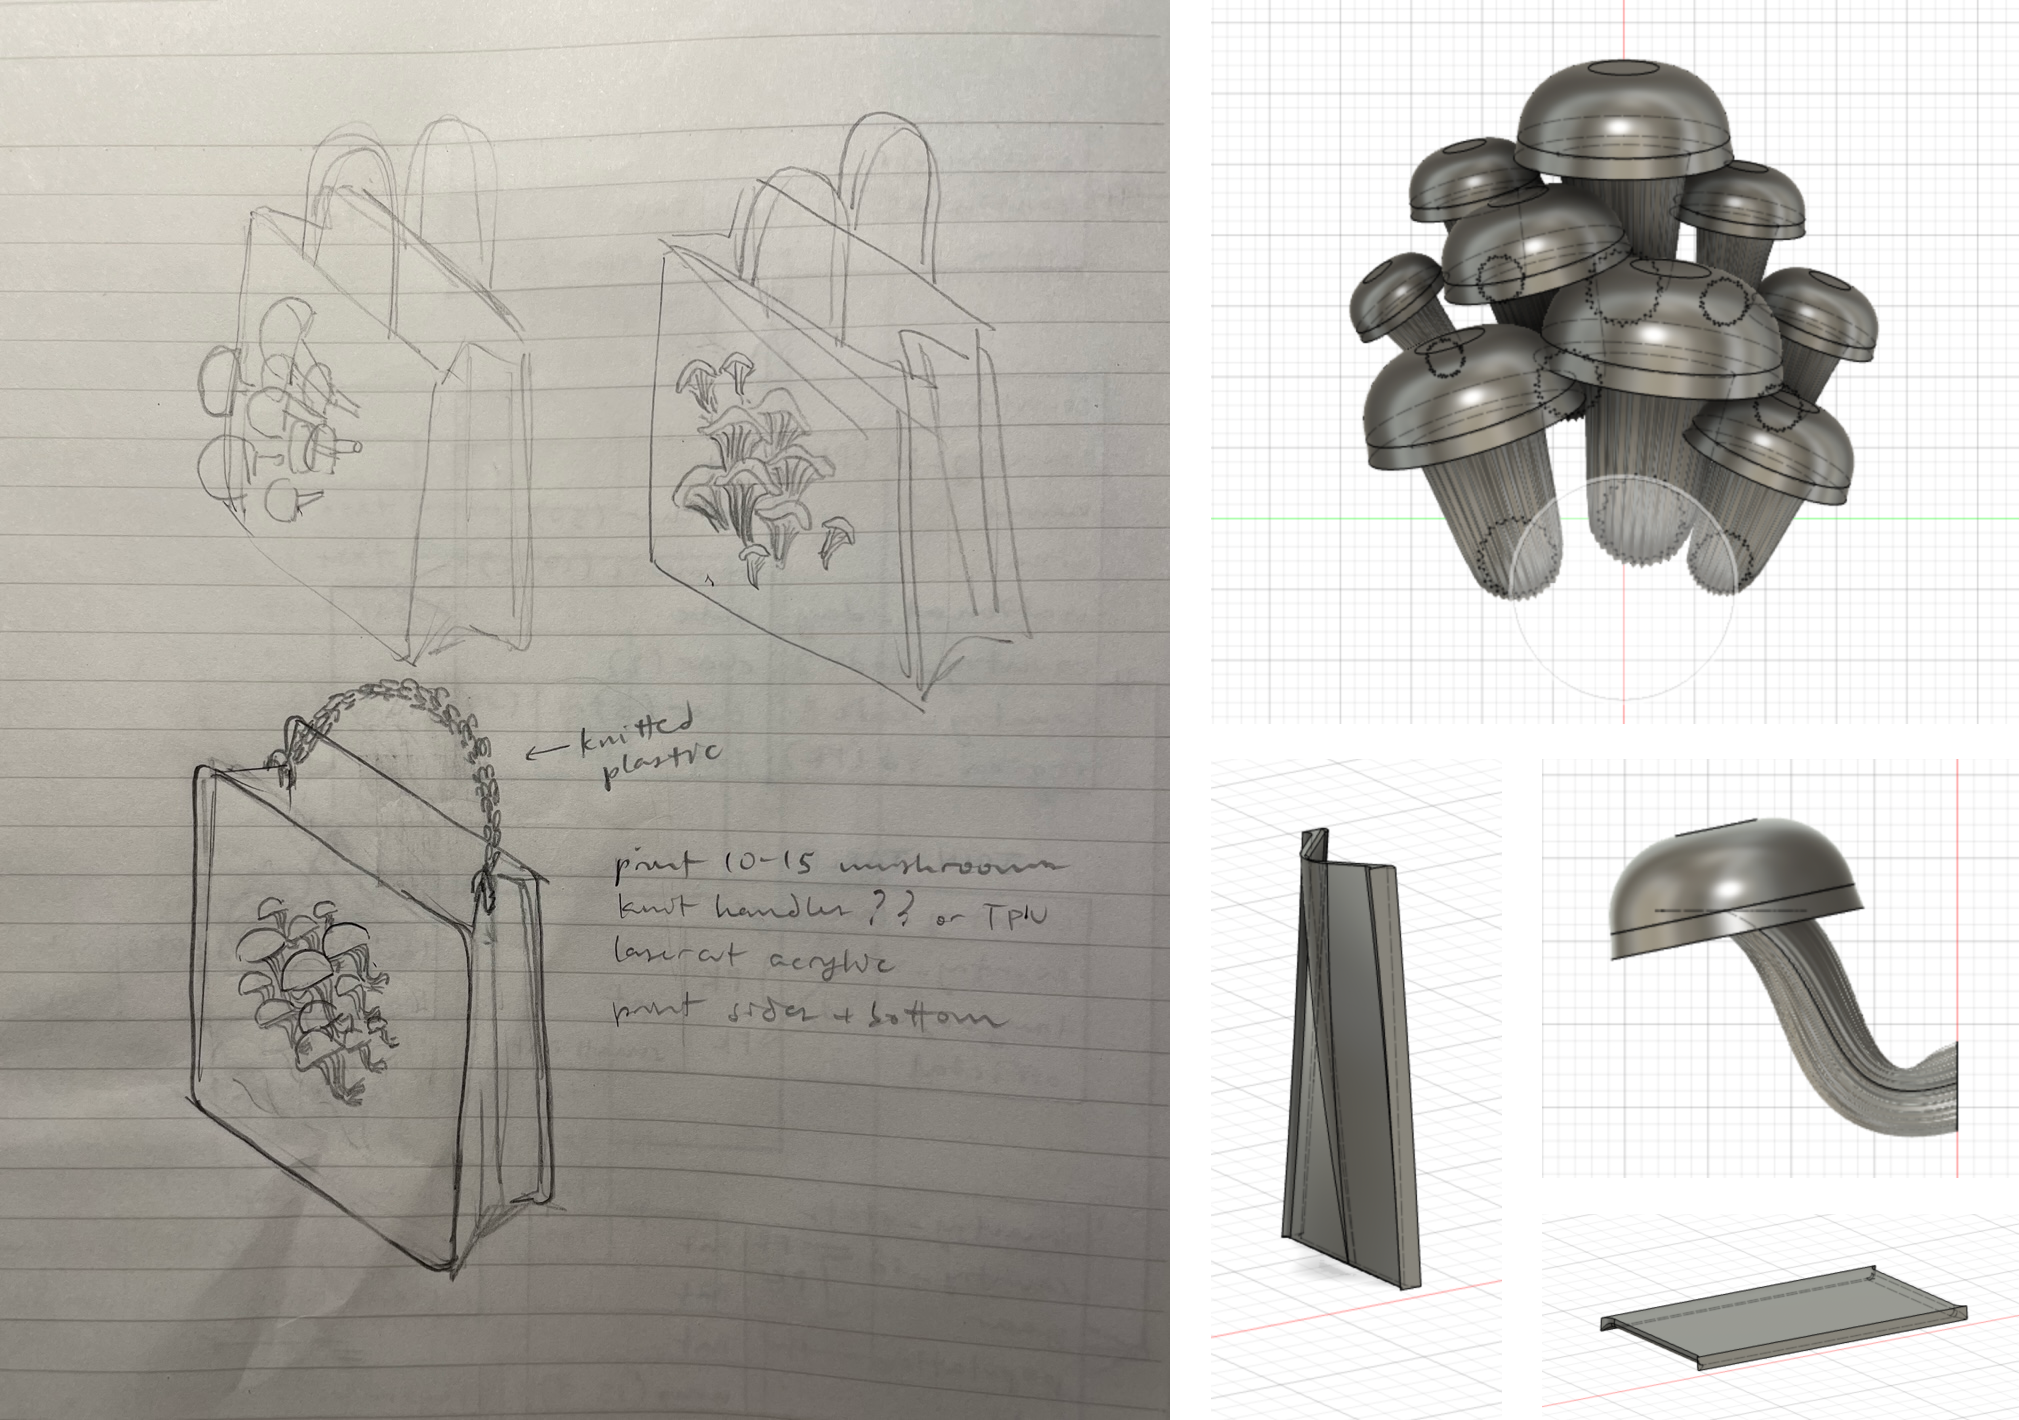 ← knitted
plastic
print 10-15 mushrooms
knot handles ?? or TPU
lasercut acrylic
print sides + bottom